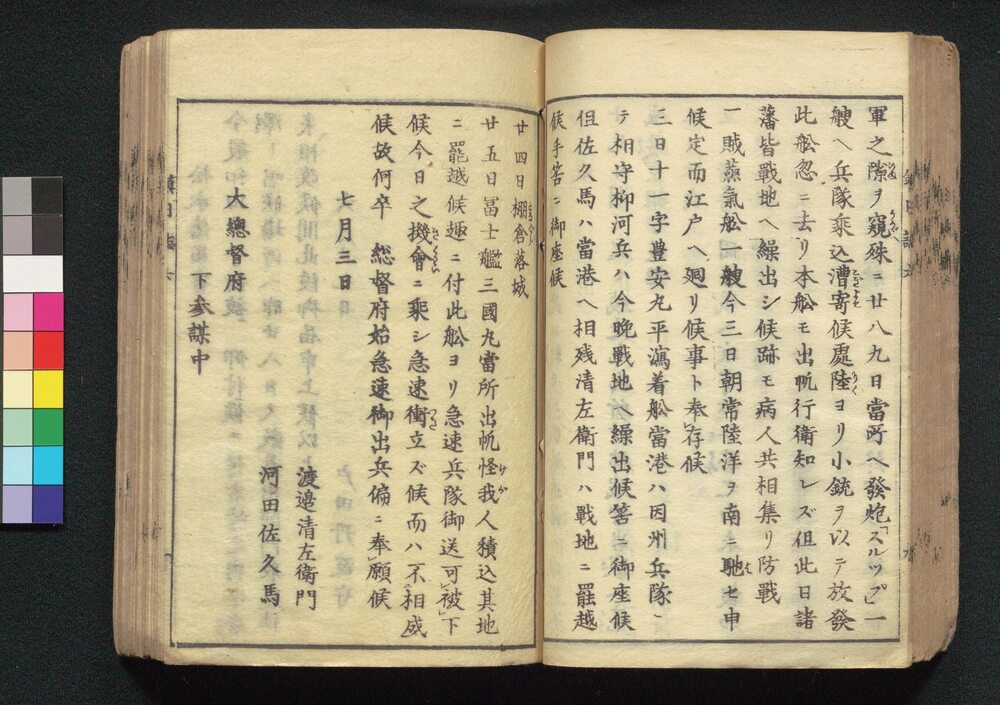 軍之隙ヲ窺殊ニ廿八九日當所ヘ發炮「スルップ」一
艘ヘ兵隊乘込漕寄候處陸ヨリ小銃ヲ以テ放發
此舩忽ニ去リ本舩モ出帆行衛知レズ但此日諸
藩皆戰地ヘ繰出シ候跡モ病人共相集リ防戰
一賊蒸氣舩一艘今三日朝常陸洋ヲ南ニ馳セ申
候定而江戸ヘ廻リ候事ト奉存候
三日十一字豊安丸平瀉着舩當港ハ因州兵隊ニ
テ相守柳河兵ハ今晩戰地ヘ繰出候筈ニ御座候
但佐久馬ハ當港ヘ相殘清左衛門ハ戰地ニ罷越
候手筈ニ御座候
廿四日棚倉落城
廿五日冨士艦三國丸當所出帆怪我人積込其地
ニ罷越候趣ニ付此舩ヨリ急速兵隊御送可被下
候今日之機會ニ乘シ急速衝立ズ候而ハ不相成
候故何卒 総督府始急速御出兵偏ニ奉願候
七月三日
渡邉清左衛門
河田佐久馬
大總督府
下參謀中